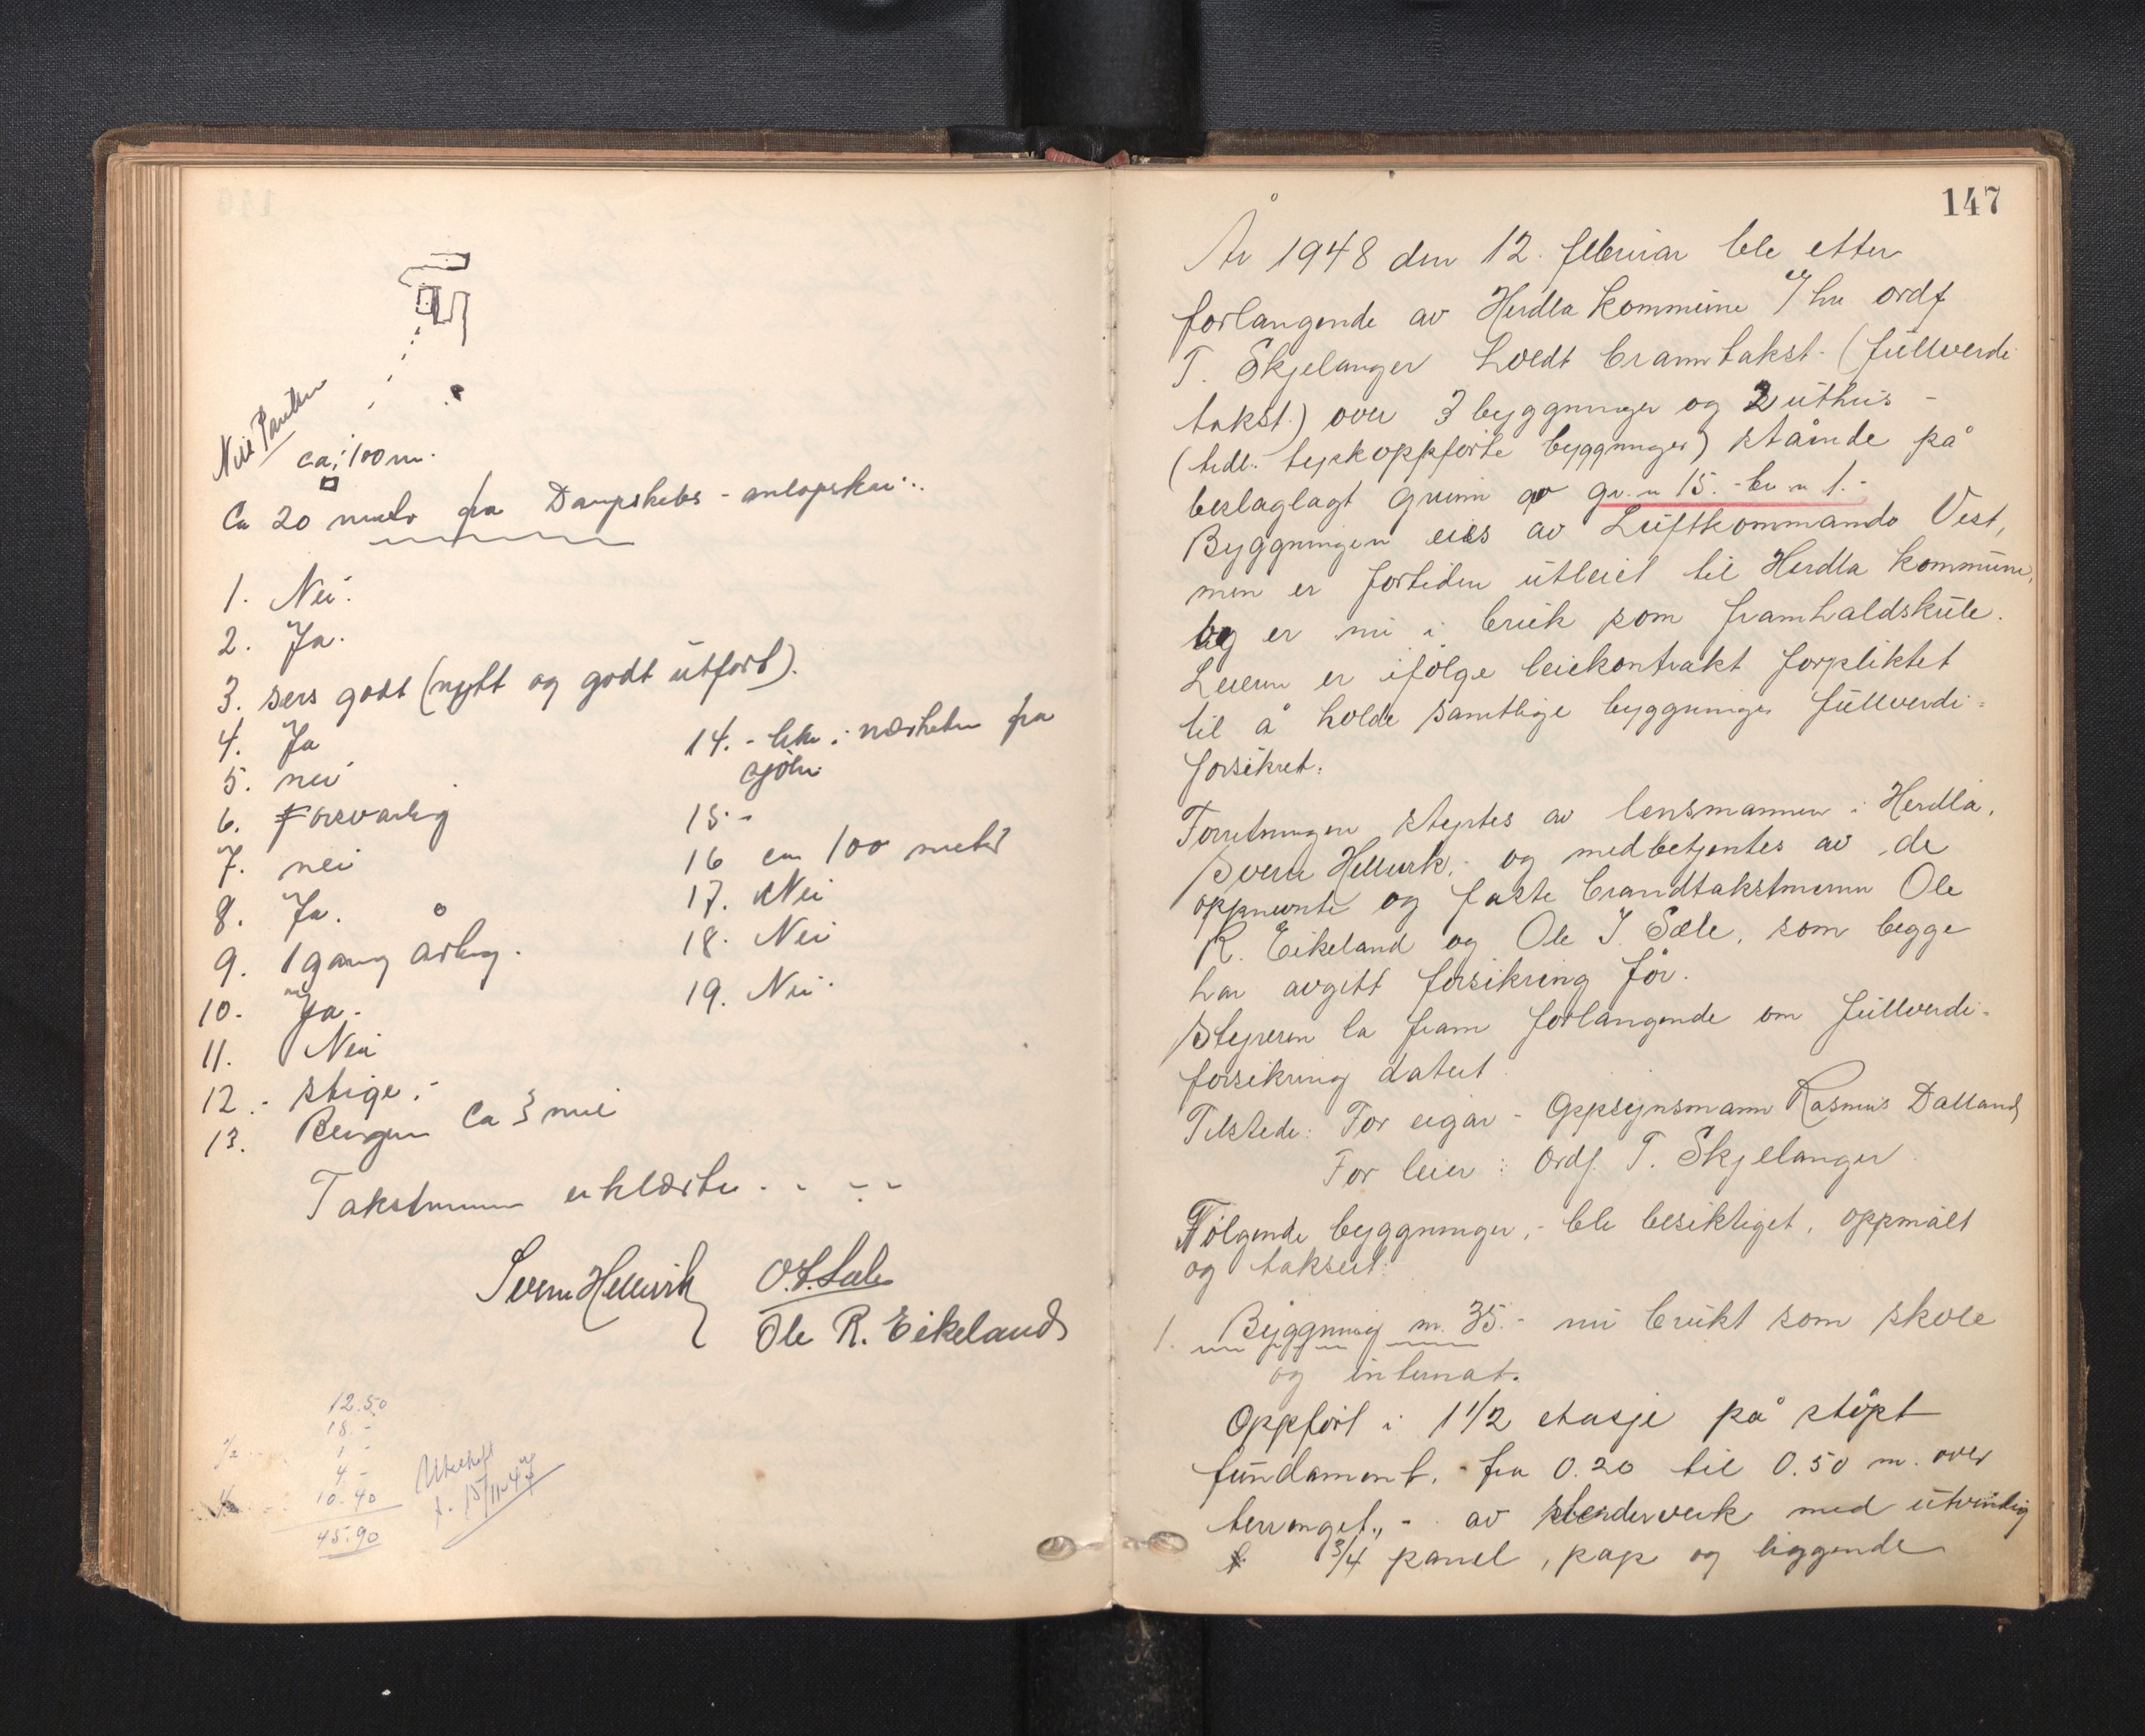 ca. 100 m.
Ca 20 meter fra Dampskibs-anløpskai...
1. Nei.
2. Ja.
3. sers godt (nytt og godt utført).
4. Ja
5. nei
6. Forsvarlig
7. nei
8. Ja.
9. 1 gang årlig.
10. Ja.
11. Nei
12.- stige.-
13. Bergen Ca 3 mil
14.- like i nærheten fra
sjøen.
15.-
16 ca 100 meter
17. Nei
18. Nei
19. Nei.
Takstmenn erklærte . - - -
Sverre Hellevik O. J. Sæle
Ole R. Eikeland
12.50
18.-
1-
4.-
10.40
45.90
147
År 1948 den 12. februar ble etter
forlangende av Herdla kommune v/ ordf
T. Skjelanger holdt branntakst (fullverdi
takst) over 3 byggninger og 2 uthus -
(tidl. tyskoppførte byggninger) stående på
beslaglagt grunn av gr.n 15.- br.n 1.-
Byggningen eies av Luftkommando Vest,
men er fortiden utleiet til Herdla kommune,
og er nu i bruk som framhaldskule.
Leieren er ifølge leiekontrakt forpliktet
til å holde samtlige byggninger fullverdi-
forsikret.
Forretningen styrtes av lensmannen i Herdla,
Sverre Hellevik, og medbetjentes av de
oppnevnte og faste brandtakstmenn Ole
R. Eikeland og Ole J. Sæle, som begge
har avgitt forsikring før.
Styreren la fram forlangende om fullverdi-
forsikring datert
Tilstede: For eigar - Oppsynsmann Rasmus Dalland
For leier: Ordf. T. Skjelanger
Følgende byggninger,- ble besiktiget, oppmålt
og taksert:
1. Byggning nr. 35.- nu brukt som skole
og internat.
Oppført i 1 1/2 etasje på støpt
fundament, - fra 0.20 til 0.50 m. over
terrenget,, - av stenderverk med utvendig
3/4 panel, pap og liggende